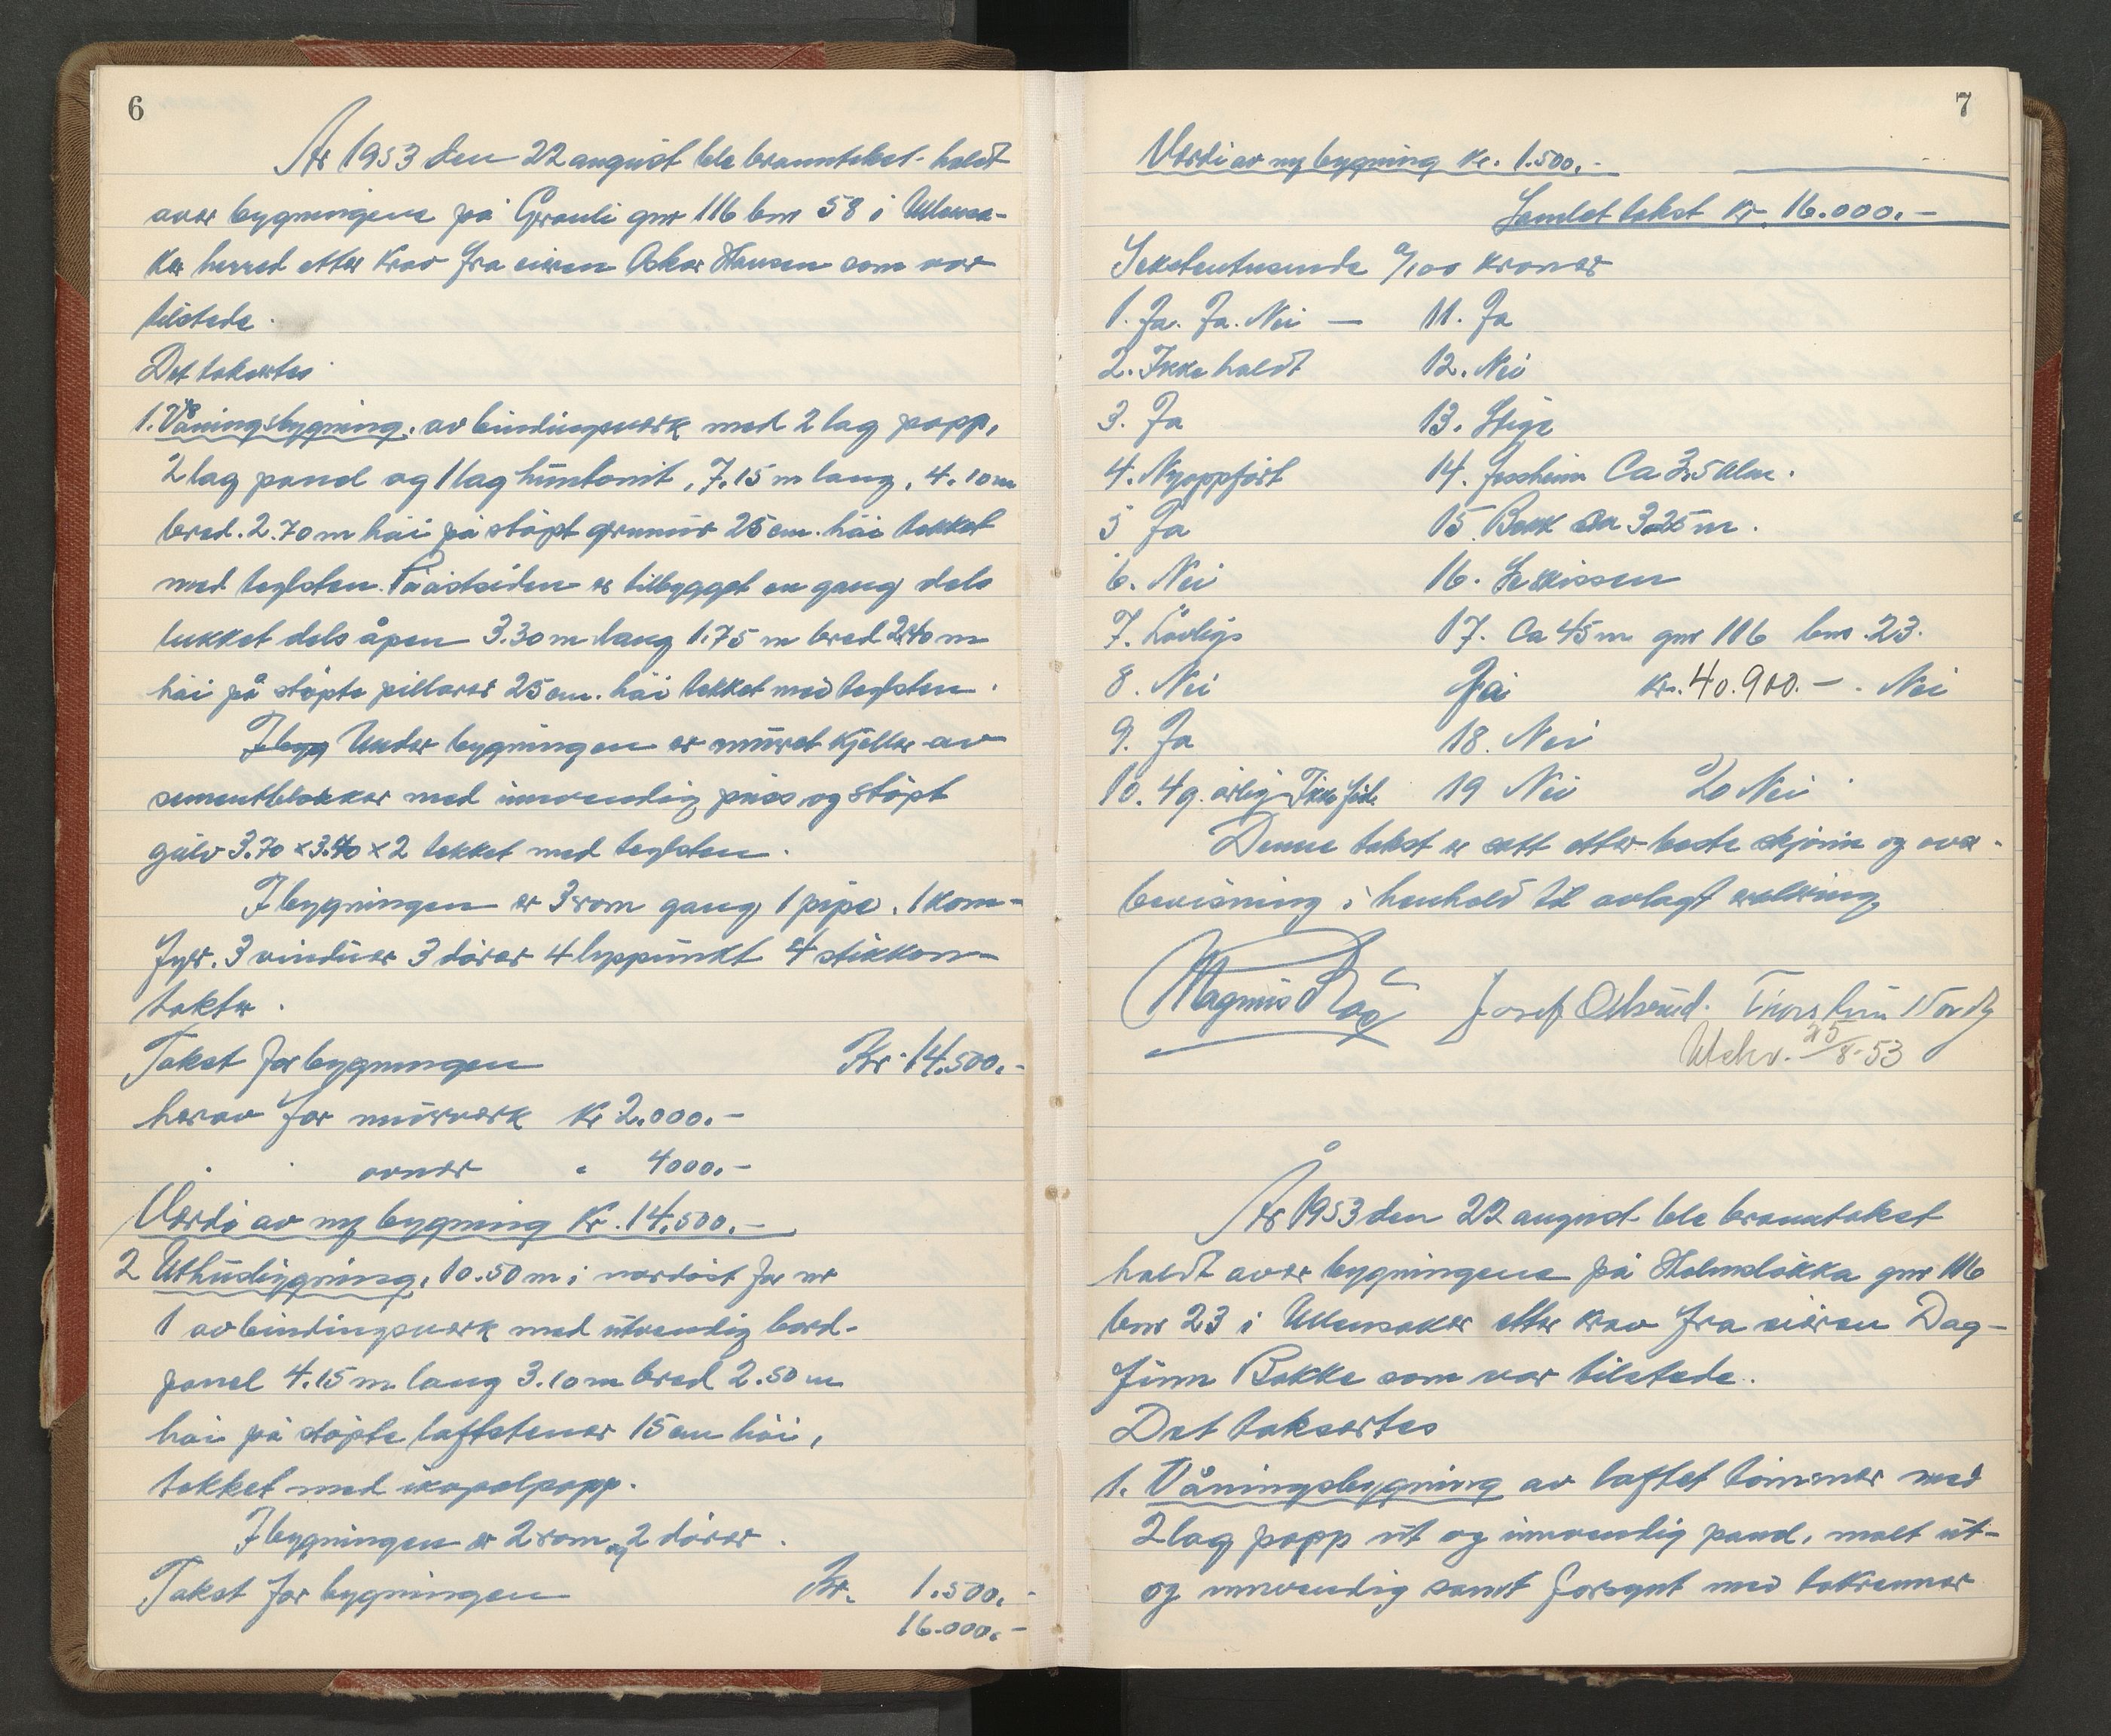 6
År 1953 den 22 august ble branntakst holdt
over bygningene på Granli gnr 116 bnr 58 i Ullensa-
ker herred etter krav fra eieren Oskar Hansen som var
tilstede.
Det taksertes
1. Våningsbygning. av bindingsverk med 2 lag papp,
2 lag panel og 1 lag huntonit, 7.15 m lang, 4.10 m
bred. 2.70 m høi på støpt grunnur 25 cm. høi tekket
med teglsten. På østsiden er tilbygget en gang dels
lukket dels åpen 3.30 m lang 1.75 m bred 2.40 m
høi på støpte pillarer 25 cm. høi tekket med teglsten.
I bygg Under bygningen er muret kjeller av
sementblokker med innvendig puss og støpt
gulv 3.70 x 3.40 x 2 tekket med teglsten.
I bygningen er 3 rom gang 1 pipe. 1 kom-
fyr. 3 vinduer 3 dører 4 lyspunkt 4 stikkon-
takter.
Takst for bygningen Kr. 14.500.-
herav for murverk Kr 2.000.-
" " ovner " 4000.-
Verdi av ny bygning Kr. 14.500.-
2 Uthusbygning. 10.50 m i nordøst for nr
1 av bindingsverk med utvendig bord-
panel 4.15 m lang 3.10 m bred 2.50 m
høi på støpte loftstener 15 cm høi,
tekket med icopalpapp.
I bygningen er 2 rom og 2 dører.
Takst for bygningen Kr. 1.500.-
16.000.-
7
Verdi av ny bygning Kr. 1.500.-
Samlet takst Kr. 16.000.-
Sekstentusende 0/100 kroner
1. Ja. Ja. Nei — 11. Ja
2. Ikke holdt 12. Nei
3. Ja 13. Stige
4. Nyoppført 14. Jessheim Ca 3,5 klm.
5 Ja 15. Bekk ca 325 m.
6. Nei 16.
7. Lovlige 17. Ca 45 m gnr 116 bnr. 23.
8. Nei Ja Kr. 40.900.- . Nei
9. Ja 18. Nei
10. 4 g. årlig Ikke feil. 19 Nei 20 Nei
Denne takst er satt etter beste skjønn og over-
bevisning i henhold til avlagt erklæring.
Magnus Josef Thorstein Nordby
Utskr. 25/8-53
År 1953 den 22 august ble branntakst
holdt over bygningene på Holmsløkka gnr 116
bnr 23 i Ullensaker etter krav fra eieren Dag-
finn Bakke som var tilstede.
Det taksertes
1. Våningsbygning av laftet tømmer med
2 lag papp ut og innvendig panel, malt ut-
og innvendig samt forsynt med takrenner